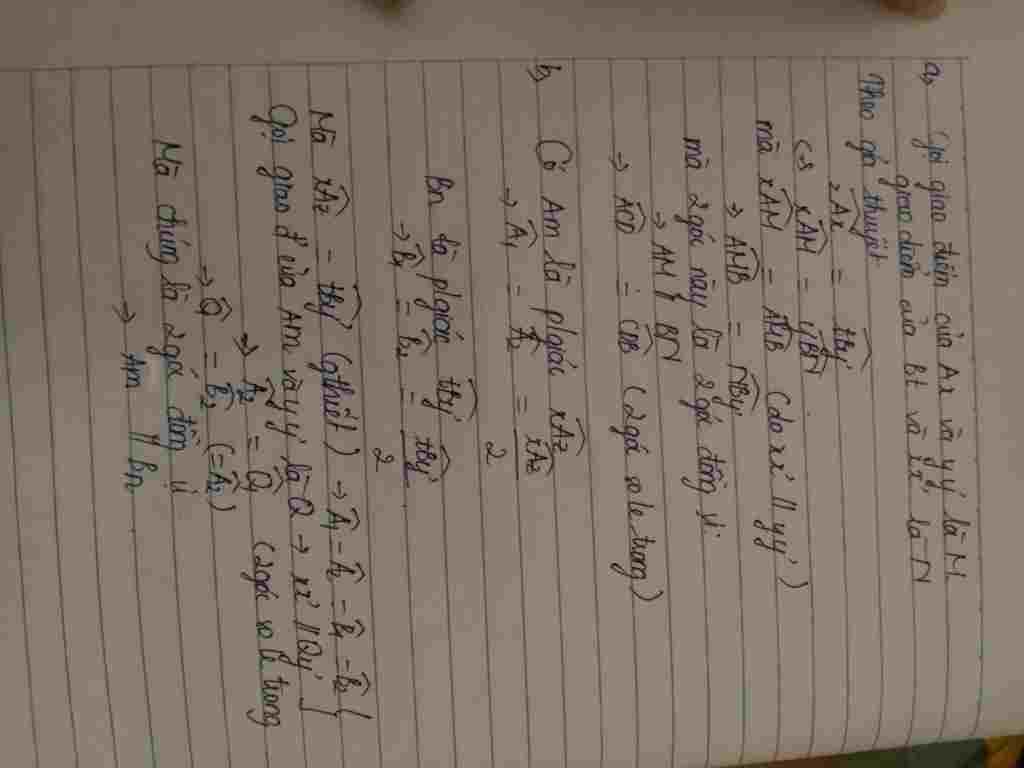 a, Gọi giao điểm của Az và yy' là M
giao điểm của Bt và xx' là N
Theo giả thuyết
xAz = tby'
(-) xAM = yBN
mà xAM = AMB (do xx' // yy')
→ AMB = NBy'
mà 2 góc này là 2 góc đồng vị
→ AM // BN
→ = (2 góc so le trong)
b, Có Am là p/giác xAz
→ A1 = A2 = xAz
2
Bn là p/giác tby'
→ B1 = B2 = tby'
2
Mà xAz = tby' (gthiết) → A1 = A2 = B1 = B2 {
Gọi giao đ' của Am và yy' là Q → xx' // Qy' }
→ A2 = Q1 (2 góc so le trong
→ Q = B2 (=A2)
Mà chúng là 2 góc đồng vị
→ Am // Bn